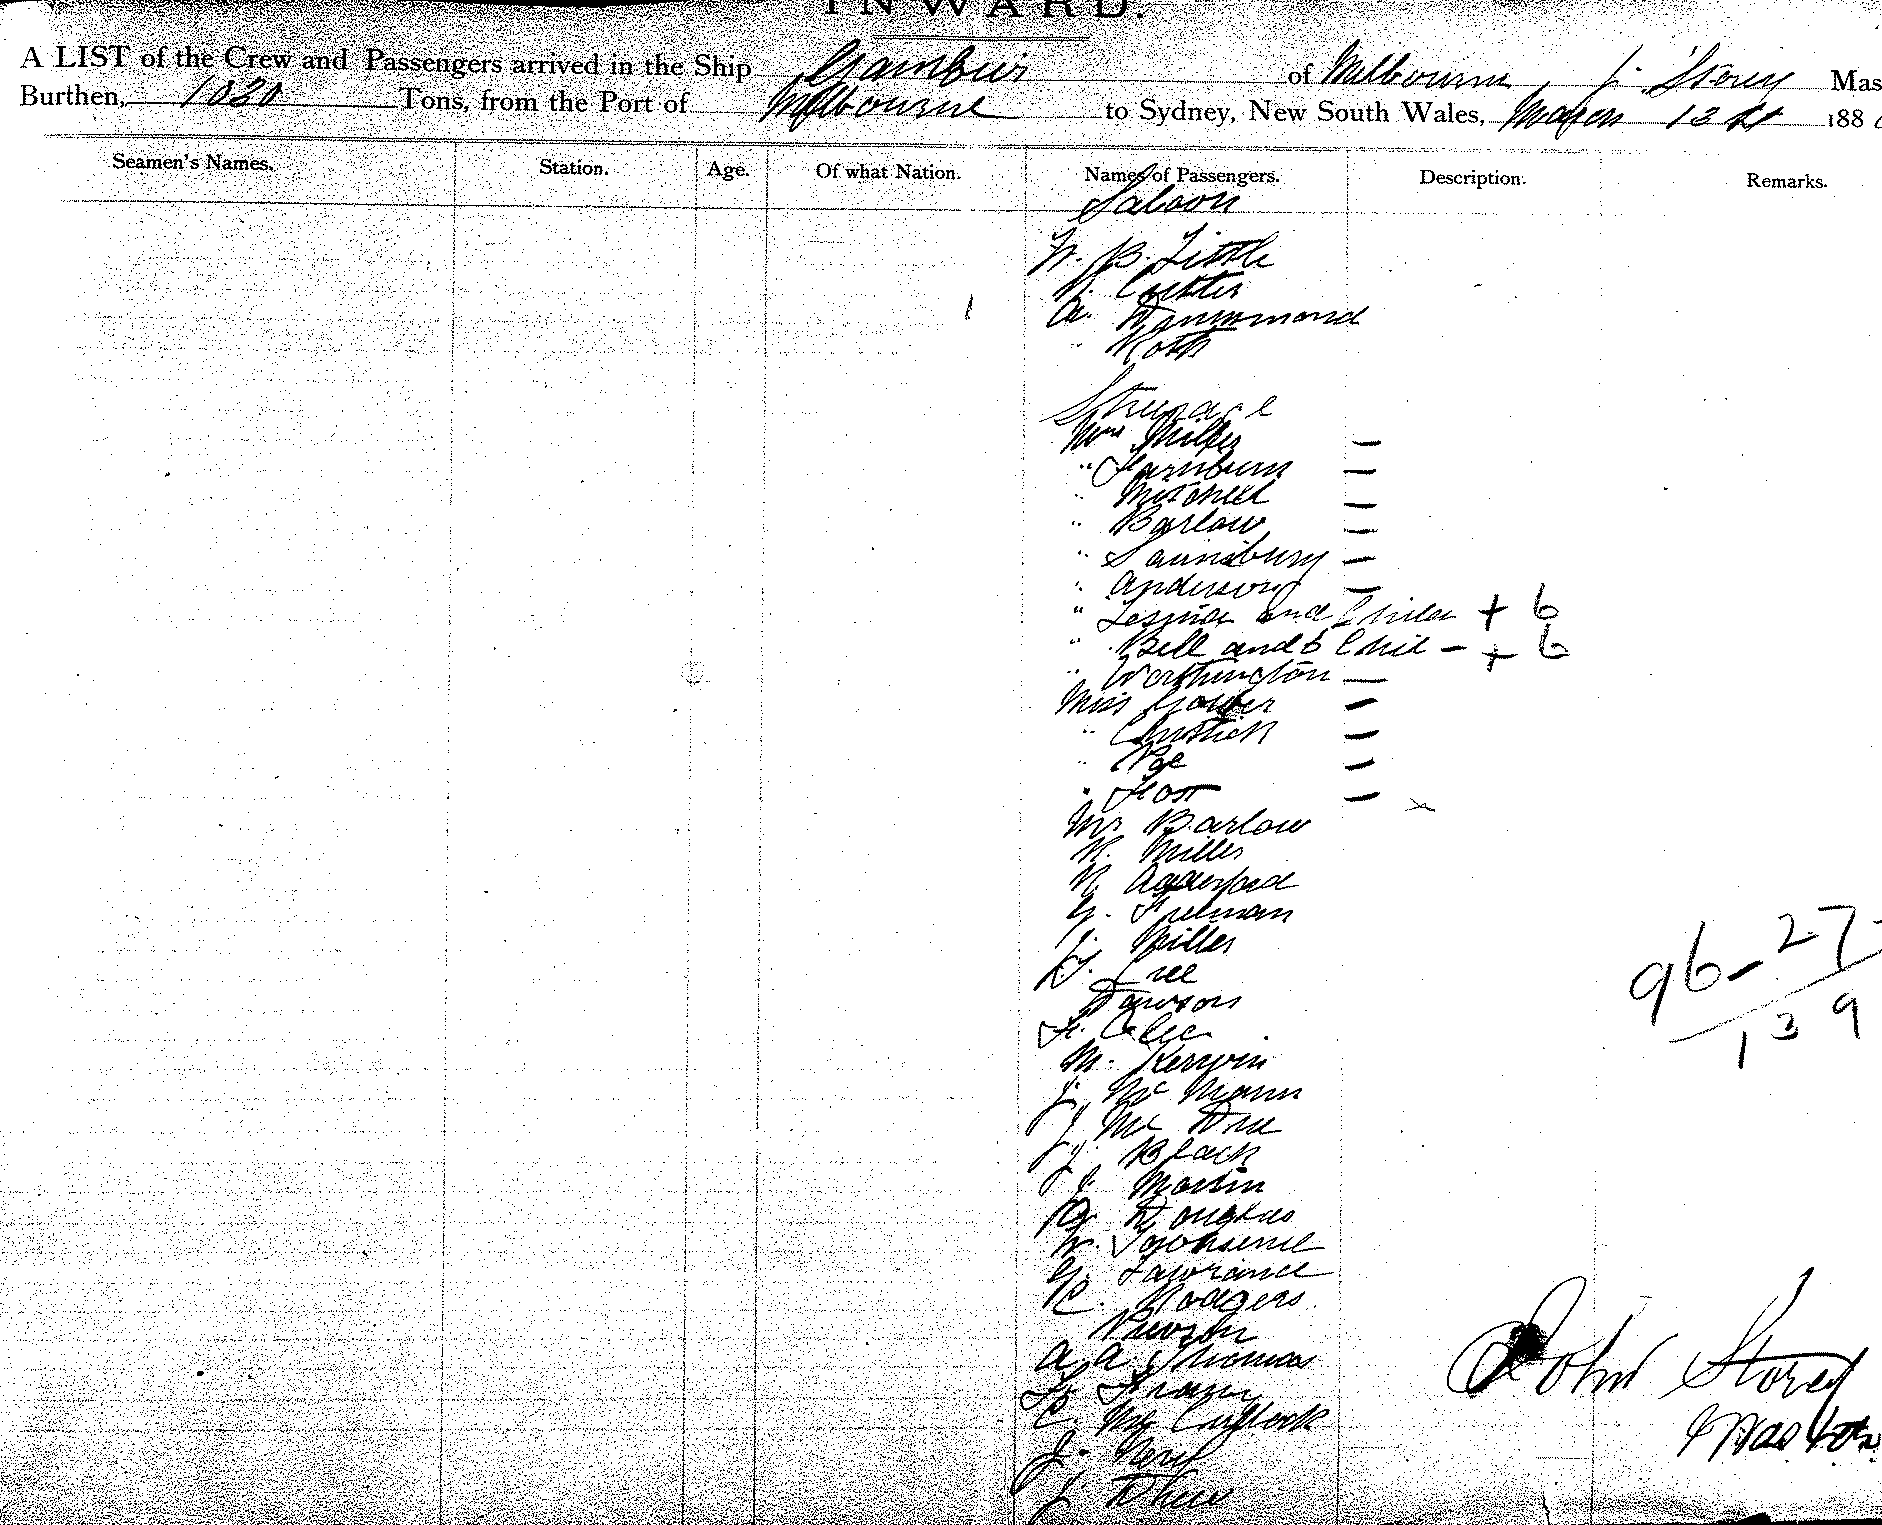 INWARD.
A LIST of the Crew and Passengers arrived in the Ship Gambier of Melbourne J. Storey Mas
Burthen, 1020 Tons, from the Port of Melbourne to Sydney, New South Wales, March 13 188
Seamen's Names. Station. Age. Of what Nation. Names of Passengers. Description. Remarks.
Saloon
W. B. Little
A. Drummond
" Roth
Steerage
Mrs Miller —
" Farnburn —
" Mitchell —
" Barlow —
" Sainsbury —
" Anderson —
" and Childn + 6
" Bell and 5 Chil - + 6
" Worthington —
Miss —
" —
" Poe —
" —
Mr Barlow
R. Miller
N.
G. Freeman
J. Miller
Cree
Dawson
F.
M. Kerwin
J. McMann
J. Mc
J. Black
J. Martin
Douglas
W. Townsend
G. Lawrance
C. Rodgers
A. A. Thomas
C. McCullock
J.
J.
96-27
139
John Storey
Master